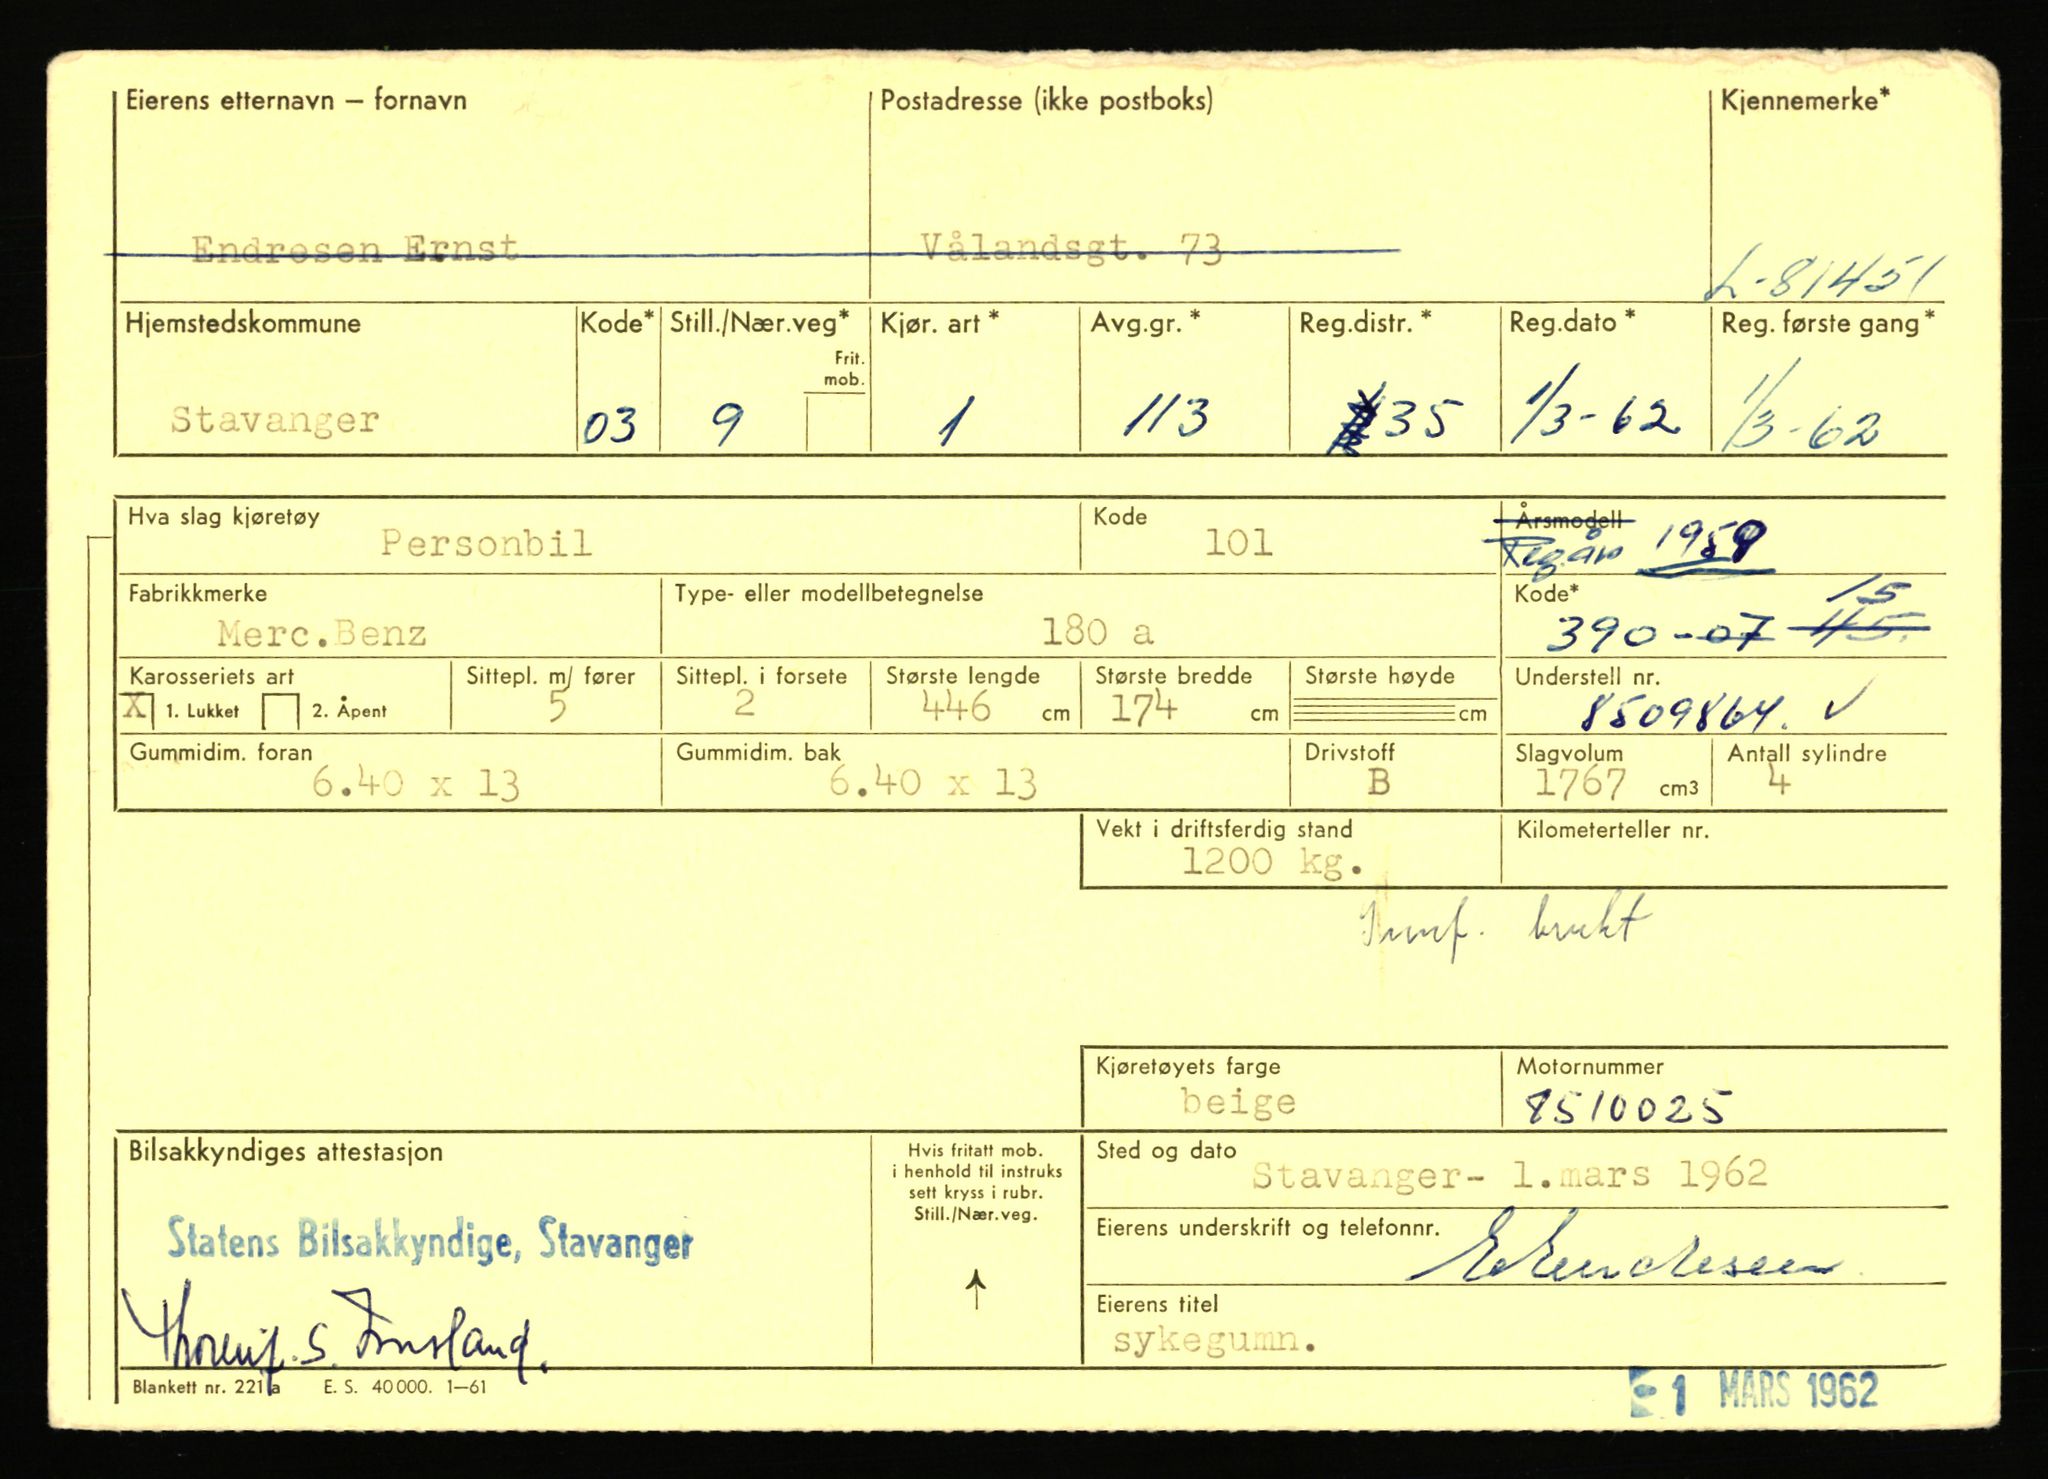 Eierens etternavn — fornavn Postadresse (ikke postboks) Kjennemerke*
Endresen Ernst Vålandsgt. 73 L-81451
Hjemstedskommune Kode* Still./Nær.veg* Kjør. art * Avg.gr. * Reg.distr. * Reg.dato * Reg. første gang *
Frit.
mob.
Stavanger 03 9 1 113 35 1/3-62 1/3-62
Hva slag kjøretøy Kode Årsmodell
Personbil 101 Reg.år 1959
Fabrikkmerke Type- eller modellbetegnelse Kode* 15
Merc.Benz 180 a 390-07 45
Karosseriets art Sittepl. m/ fører Sittepl. i forsete Største lengde Største bredde Største høyde Understell nr.
X 1. Lukket 2. Åpent 5 2 446 cm 174 cm cm 8509864. ✓
Gummidim. foran Gummidim. bak Drivstoff Slagvolum Antall sylindre
6.40 x 13 6.40 x 13 B 1767 cm3 4
Vekt i driftsferdig stand Kilometerteller nr.
1200 kg.
brukt
Kjøretøyets farge Motornummer
beige 8510025
Bilsakkyndiges attestasjon
Hvis fritatt mob.
i henhold til instruks
sett kryss i rubr.
Still./Nær.veg.
Sted og dato
Stavanger- 1.mars 1962
Statens Bilsakkyndige, Stavanger
Eierens underskrift og telefonnr.
E Endresen
Eierens titel
sykegumn.
Blankett nr. 221 a E. S. 40 000. 1—61
1 MARS 1962